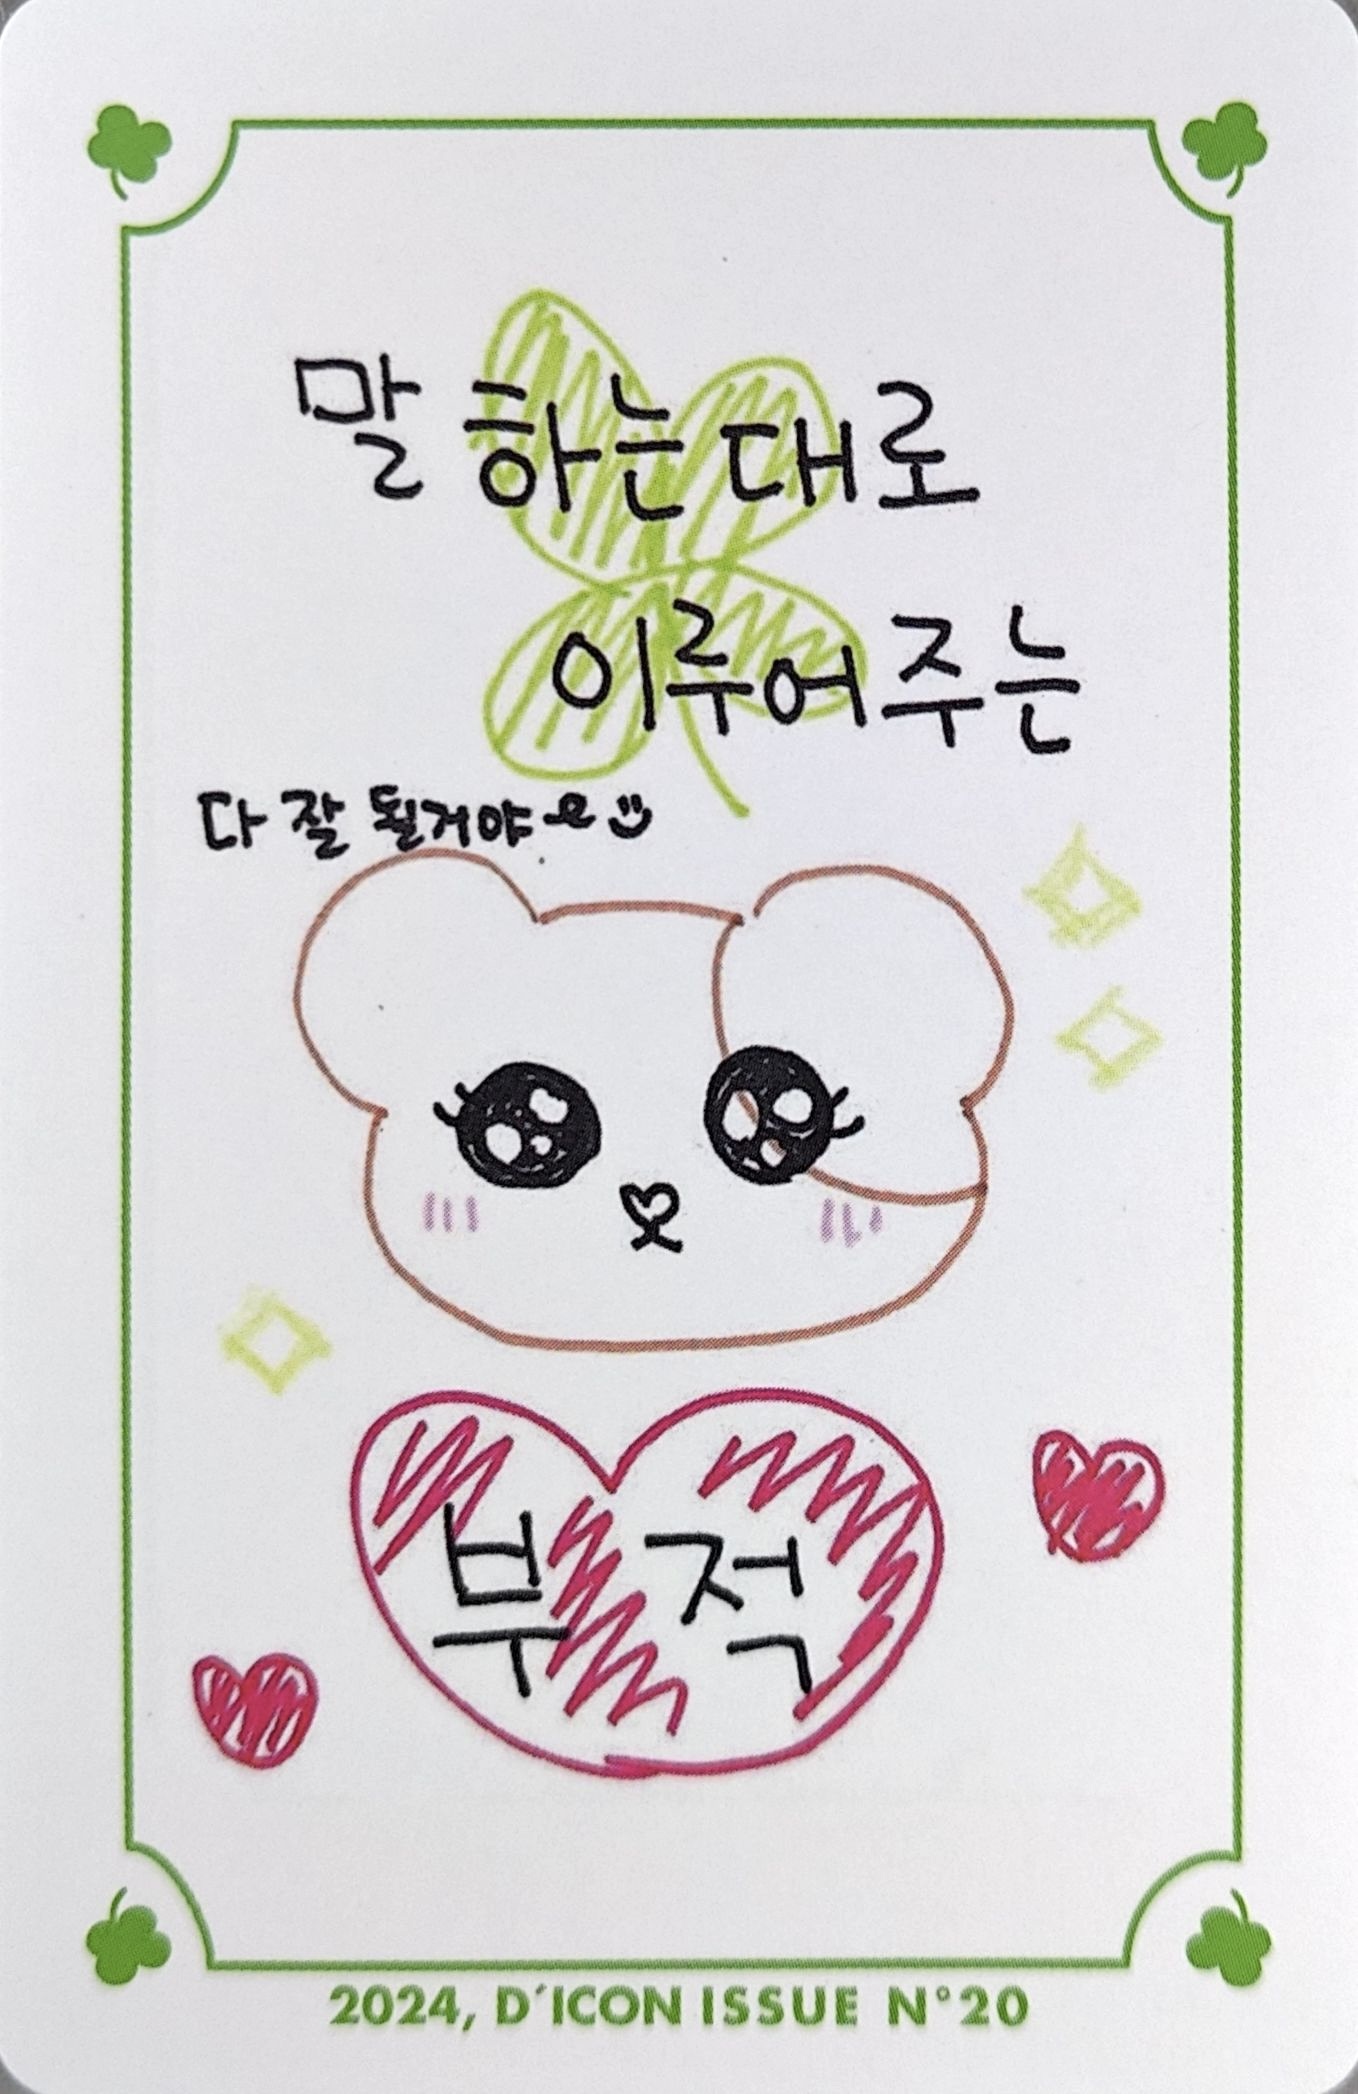 말 하는대로
이루어주는
다 잘 될거야~!
부적
2024, D´ICON ISSUE N°20